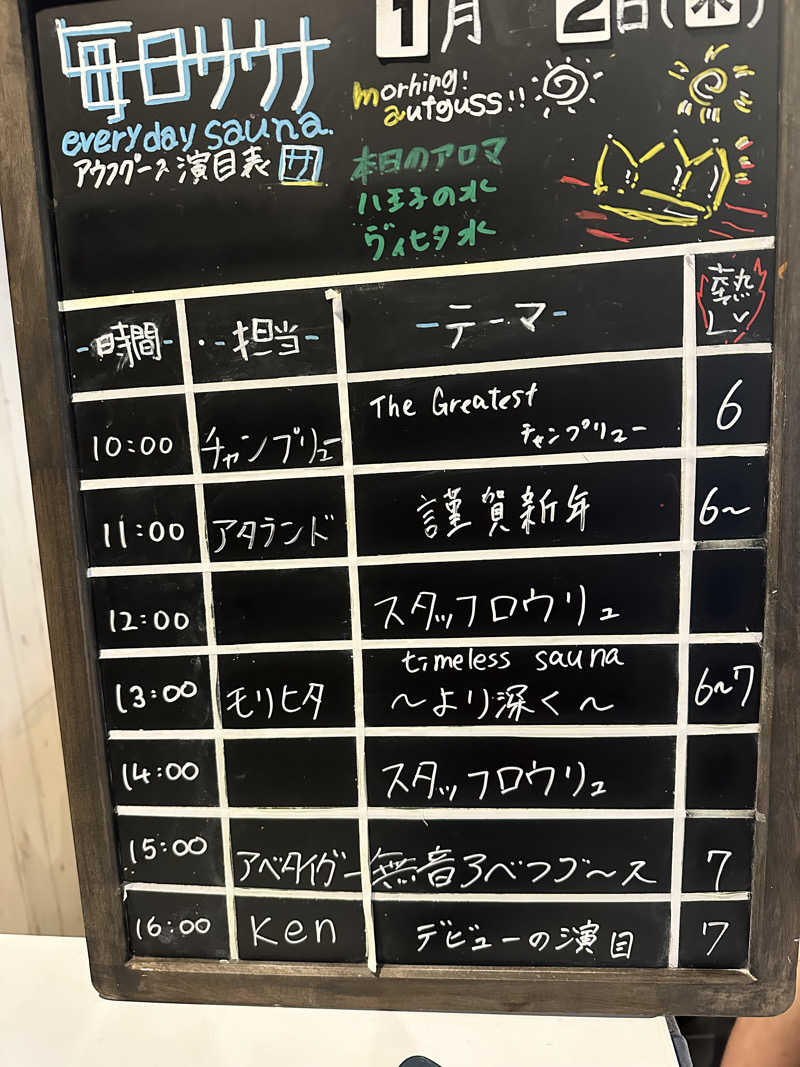 毎日サウナ
everyday sauna.
アウフグース演目表 サ
1月 2日(木)
morning!
aufguss!!
本日のアロマ
八王子の水
ヴィヒタ水
時間 担当 テーマ 熱Lv
10:00 チャンプリュー The Greatest
チャンプリュー 6
11:00 アタランド 謹賀新年 6~
12:00 スタッフロウリュ
13:00 モリヒタ timeless sauna
~より深く~ 6~7
14:00 スタッフロウリュ
15:00 アベタイガー 無音アベっグース 7
16:00 Ken デビューの演目 7